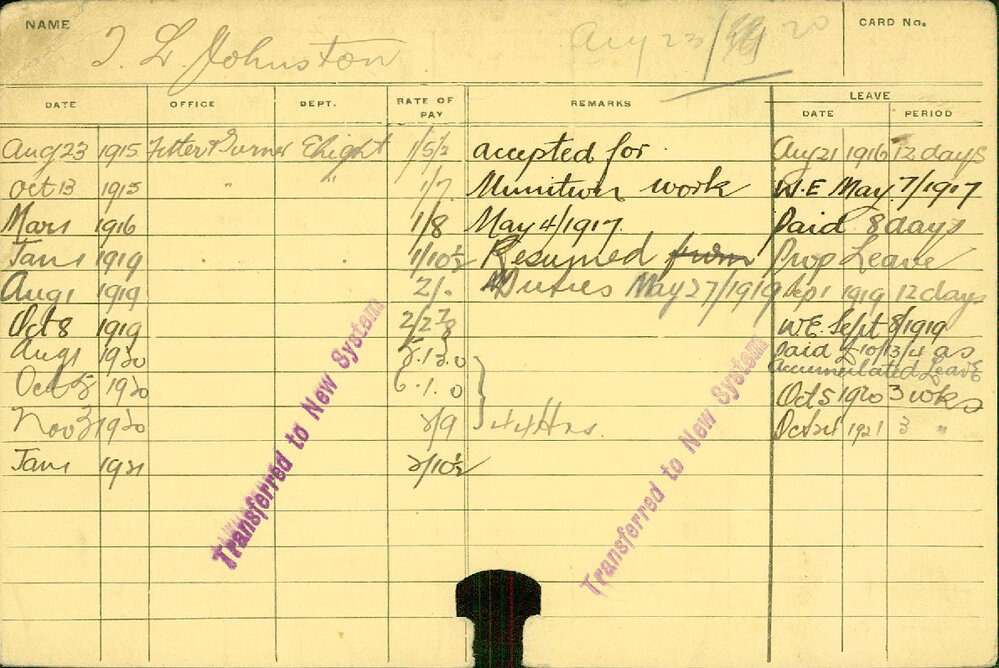 NAME T. L. Johnston Aug 23/ 20 CARD No.
DATE OFFICE DEPT. RATE OF PAY REMARKS LEAVE
DATE PERIOD
Aug 23 1915 Fitter & Turner Ehight 1/5½ accepted for Aug 21 1916 12 days
Oct 13 1915 " " 1/7 Munition work W.E May 7/1917
Mar 1 1916 1/8 May 4/1917. Paid 8 days
Jan 1 1919 1/10½ Resumed from Prop Leave
Aug 1 1919 2/. Duties May 27/1919 Sep 1 1919 12 days
Oct 8 1919 2/2 W.E. Sept 8/1919
Aug 1 1920 5.13.0 Paid £10/13/4 as
Accumulated Leave
Oct 5 1920 6.1.0 Oct 5 1920 3 wks
Nov 3 1920 2/9 44 Hrs. Oct 24 1921 3 "
Jan 1 1921 2/10½
Transferred to New System
Transferred to New System